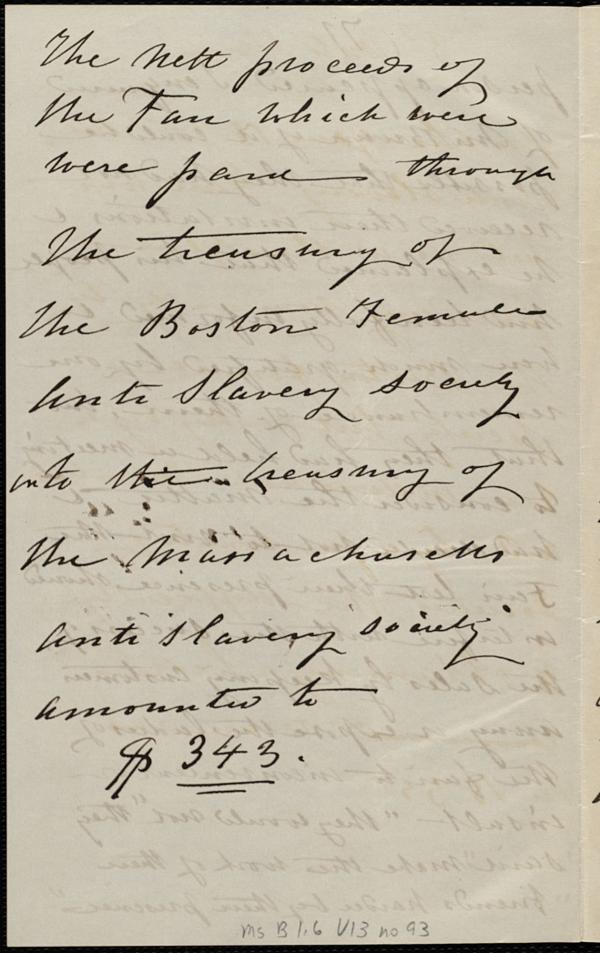 The nett proceeds of
the Fair which were
were paid through
the treasury of
the Boston Female
Anti Slavery Society
into the treasury of
the Massachusetts
Anti Slavery Society
amounted to
$ 343.
Ms B 1.6 V13 no 93